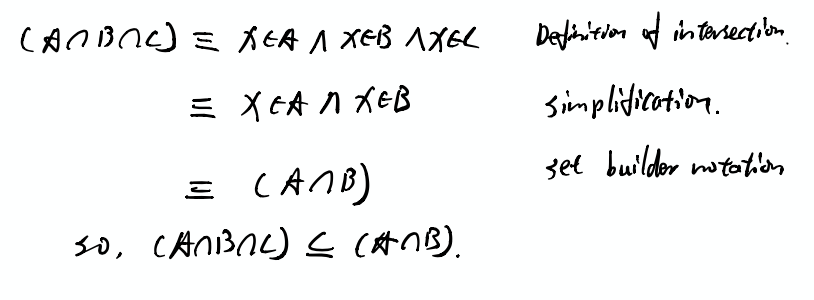 (A∩B∩C) ≡ x∈A ∧ x∈B ∧ x∈C Definition of intersection.
≡ x∈A ∧ x∈B simplification.
≡ (A∩B) set builder notation
so, (A∩B∩C) ⊆ (A∩B).